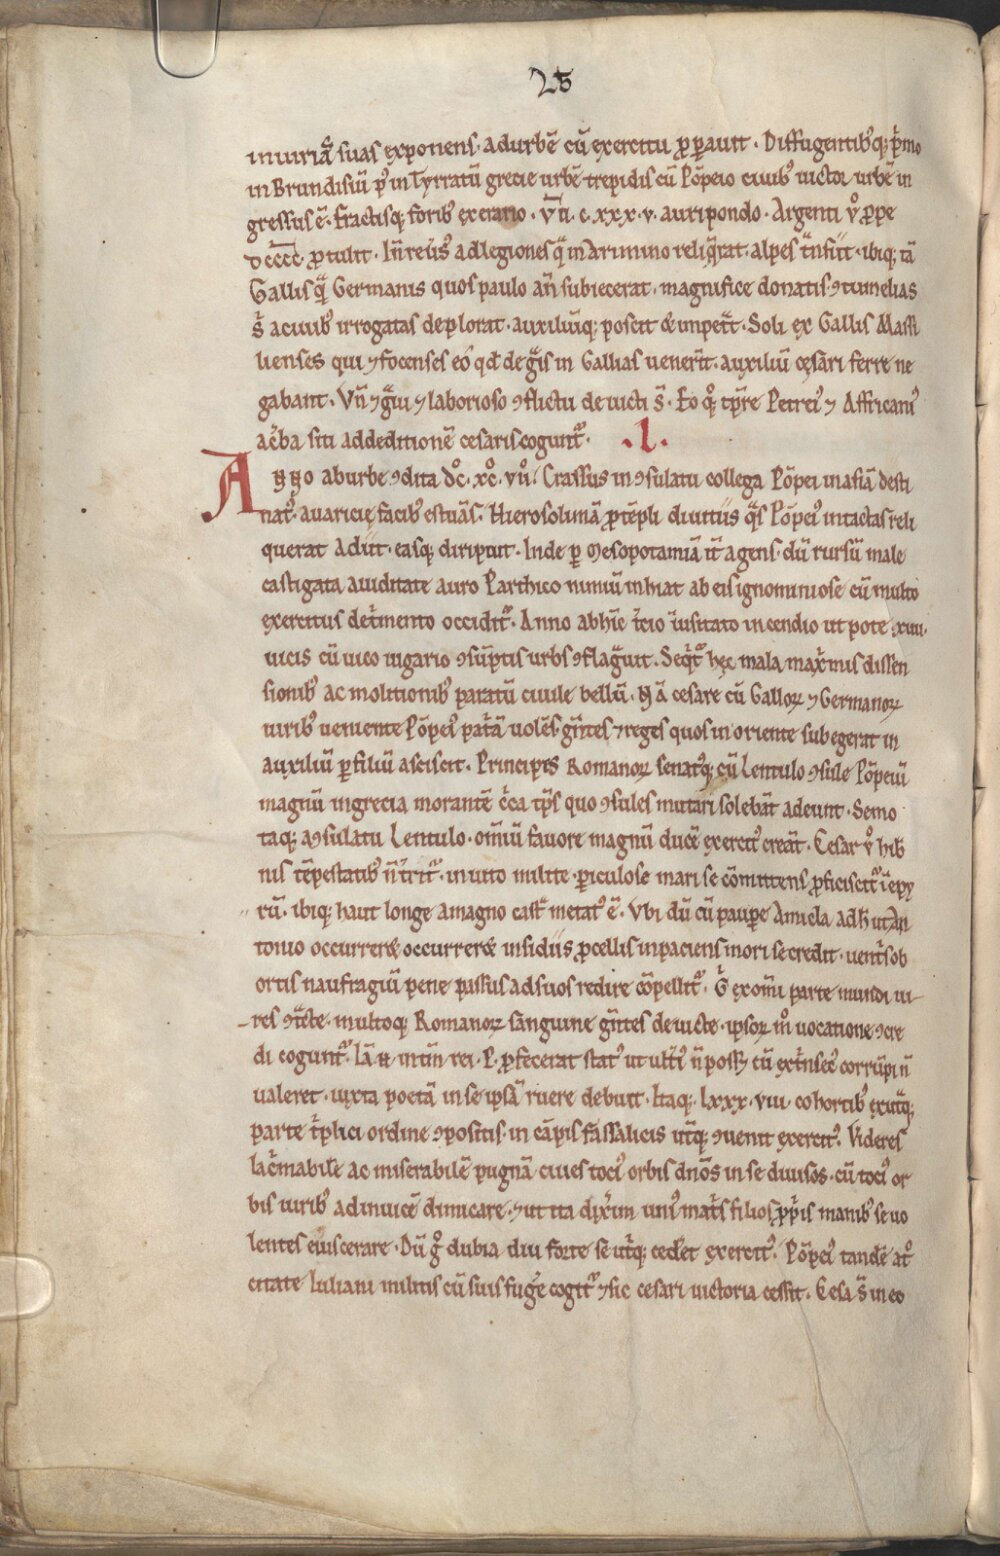 25
iniuriā suas exponens · ad urbē cū exercitu ꝓꝑauit · Diffugentibꝰ q; p̄mo
in Brundisiū pꝰ in Tyrratū grecie urbē trepidis cū Pōpeio ciuibꝰ uictor urbē in
gressus ē · fractisq; foribꝰ exerario · v̄ıı · c · xxx · v · auri pondo · Argenti v̊ ꝓpe
dcccc · ꝓtulit · In r̄eūsꝰ ad legiones q̄ in Arimino reliq̄rat · alpes t̄nsiit · ibiq; tā
Gallis q̄ Germanis quos paulo an̄ subiecerat · magnifice donatis · ꝯtumelias
s̄ a ciuibꝰ irrogatas deplorat · auxiliūq; poscit & impet̄t · Soli ex Gallis Massi
lienses qui ⁊ focenses eo qd̄ de ḡis in Gallias uener̄t · auxiliū cęsari ferre ne
gabant · Vn̄ ⁊ ḡui ⁊ laborioso ꝯflictu deuicti s̄ · Eo q̊; tp̄re Petreiꝰ ⁊ Affricaniꝰ
acēba siti ad deditionē cesaris cogunt᷑ · .l.
Anno ab urbe ꝯdita dc̊ · xc̊ · vıı̊ · Crassus in ꝯsulatu collega Pōpei in asiā desti
natꝰ · auaricię facibꝰ estuās · Hierosolimā ꝓ tēpli diuitiis q̄s Pōpeiꝰ intactas reli
querat adiit · easq; diripuit · Inde ꝑ Mesopotamiā it̄ agens · dū rursū male
castigata auiditate auro Parthico nimiū inhiat ab eis ignominiose cū multo
exercitus det̄imento occidit᷑ · Anno abhīc t̄cio īusitato incendio ut pote xıııı ·
uicis cū uico iugario ꝯsūptis urbs ꝯflaḡuit · Seq̄t᷑ hęc mala maximis dissen
sionibꝰ ac molitionibꝰ paratū ciuile bellū · Nā cesare cū Galloꝝ ⁊ Germanoꝝ
uiribꝰ ueniente Pōpeiꝰ pat̄ā uolēs · gn̄tes ⁊ reges quos in oriente subegerat in
auxiliū ꝑ filiū asciscit · Principes Romanoꝝ senatꝰq; cū Lentulo ꝯsule Pōpeiū
magnū in grecia morantē c̄ca tp̄s quo ꝯsules mutari solebāt adeunt · Semo
taq; a ꝯsulatu Lentulo · om̄iū fauore magnū ducē exercitꝰ creāt · Cesar v̊ hib̄
nis tēpestatibꝰ n̄ t̄rit᷑ · inuito milite · ꝑiculose mari se cōmittens ꝓficiscit᷑ ī epy
rū · ibiq; haut longe a magno cast̄ metatꝰ ē · Vbi dū cū paupe Amicla adh̄ ut An
tonio occurreret occurreret insidiis ꝓcellis inpaciens mori se credit · uent̄s ob
ortis naufragiū pene passus ad suos redire cōpellit᷑ · G̊ ex om̄i parte mundi ui
res ꝯt̄cte · multoq; Romanoꝝ sanguine gn̄tes deuicte · ipsoꝝ m̊ uocatione ꝯcre
di cogunt᷑ · Iā n̄ in tm̄ rei · p · ꝓfecerat statꝰ ut ult̄iꝰ n̄ poss; cū ext̄nsecꝰ corrūpi n̄
ualeret · iuxta poetā in se ipsā ruere debuit · Itaq; · lxxx · vııı · cohortibꝰ ex ut̄q;
parte t̄plici ordine ꝯpositis · in cāpis farsalicis ut̄q; ꝯuenit exercitꝰ · Videres
lac̄mabile ac miserabilē pugnā ciues tociꝰ orbis dn̄os in se diuisos · cū tociꝰ or
bis uiribꝰ adinuicē dimicare · ⁊ ut ita dix̄im uniꝰ mat̄s filios pp̄is manibꝰ se uo
lentes euiscerare · Dū g̊ dubia diu forte se ut̄q; cedet exercitꝰ · Pōpeiꝰ tandē at̊
citate Iuliani militis cū suis fugē cogit᷑ ⁊ sic cesari uictoria cessit · Cesa s̄ in eo